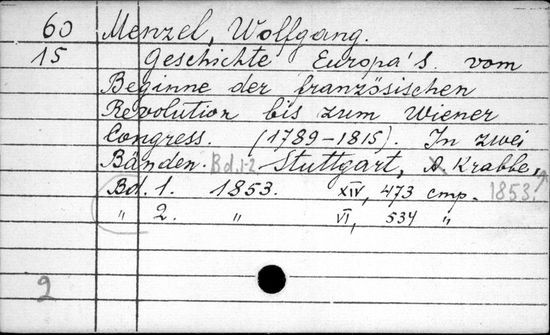 60 Menzel, Wolfgang.
15 Geschichte Europa's vom
Beginne der französischen
Revolution bis zum Wiener
Congress. (1789-1815). In zwei
Bänden. Bd. 1-2 Stuttgart, A Krabbe,
Bd. 1. 1853. XIV, 473 cmp. 1853.
„ 2. „ VI, 534 „
2